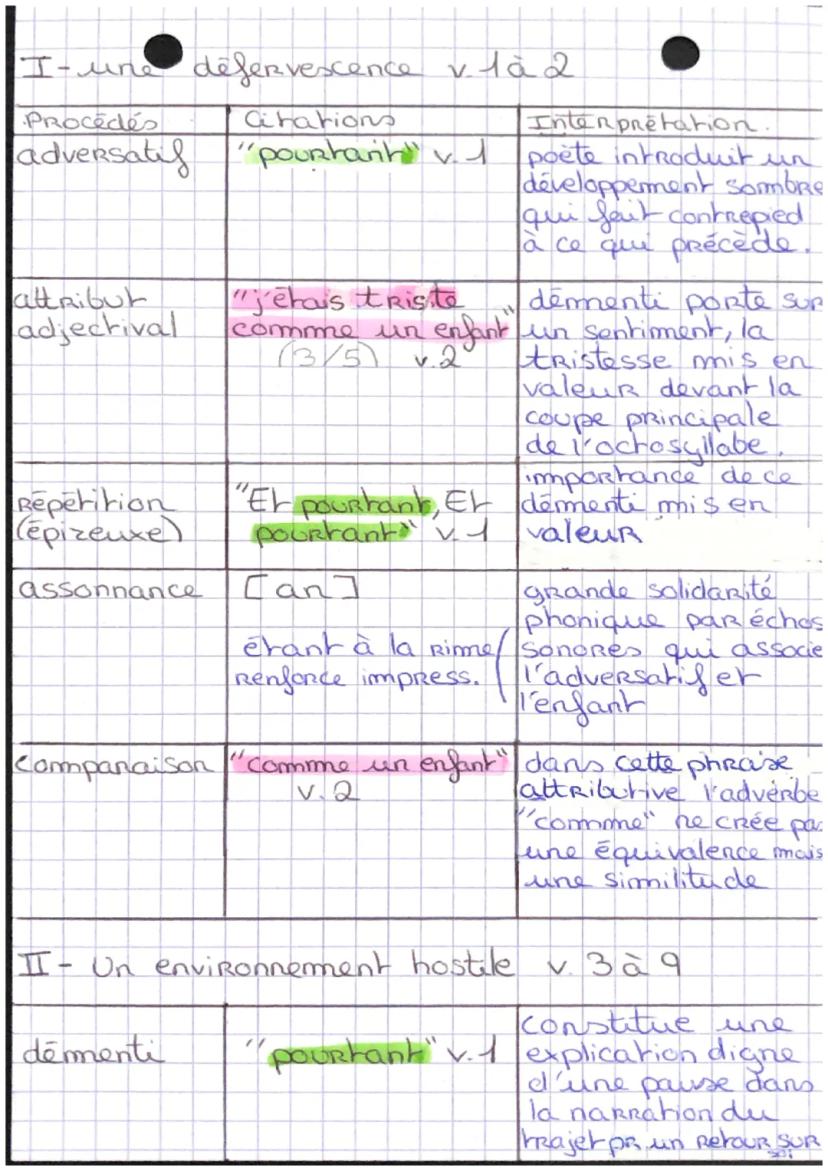 I- une défervescence v. 1 à 2
Procédés
Citations
Interprétation.
adversatif
"pourtant" v. 1
poète introduit un
développement sombre
qui fait contrepied
à ce qui précède.
attribut
adjectival
"j'étais triste
comme un enfant"
(3/5) v.2
démenti porte sur
un sentiment, la
tristesse mis en
valeur devant la
coupe principale
de l'octosyllabe.
Répétition
(épizeuxe)
"Et pourtant, Et
pourtant" v. 1
importance de ce
démenti mis en
valeur
assonnance
[an]
étant à la rime
renforce impress.
grande solidarité
phonique par échos
sonores qui associe
l'adversatif et
l'enfant
comparaison
"comme un enfant"
v. 2
dans cette phrase
attributive l'adverbe
"comme" ne crée pas
une équivalence mais
une similitude
II- Un environnement hostile v. 3 à 9
démenti
"pourtant" v. 1
constitue une
explication digne
d'une pause dans
la narration du
trajet pr un retour sur
soi